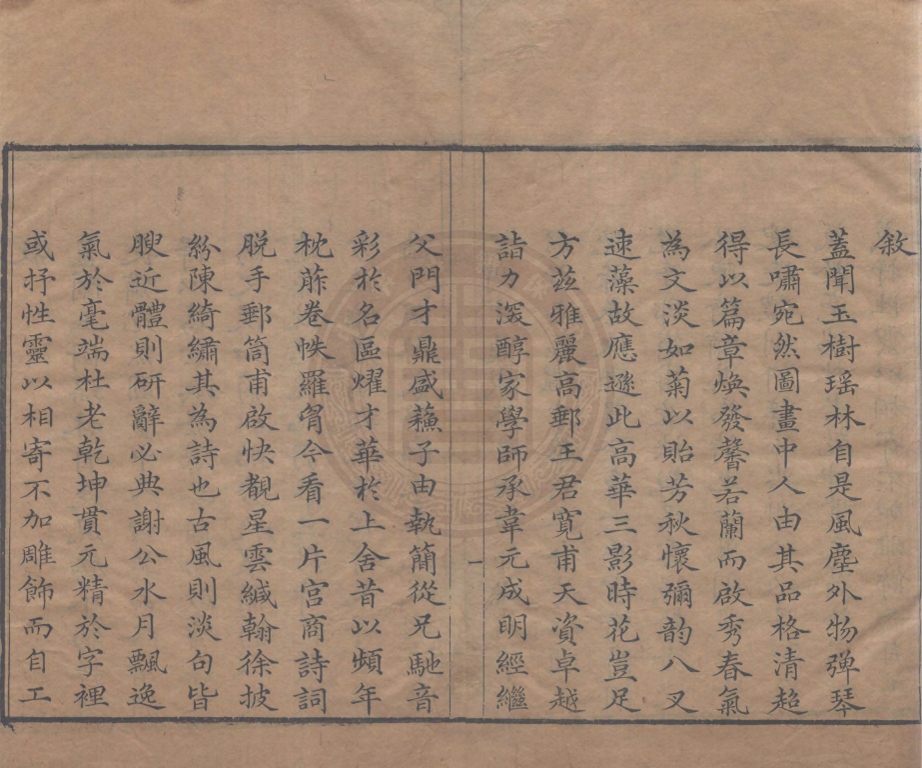 敘
蓋聞玉樹瑶林自是風塵外物弹琴
長嘯宛然圖畫中人由其品格清超
得以篇章煥發馨若蘭而啟秀春氣
為文淡如菊以貽芳秋懷彌韵八叉
速藻故應遜此高華三影時花豈足
方玆雅麗高郵王君寬甫天資卓越
詣力深醇家學師承韋元成明經繼
一
父門才鼎盛蘓子由執簡從兄馳音
彩於名區燿才華於上舍昔以頻年
枕葄卷帙羅胷今看一片宫商詩詞
脱手郵筒甫啟快覩星雲緘翰徐披
紛陳綺繡其為詩也古風則淡句皆
腴近體則研辭必典謝公水月飄逸
氣於毫端杜老乾坤貫元精於字裡
或抒性靈以相寄不加雕飾而自工